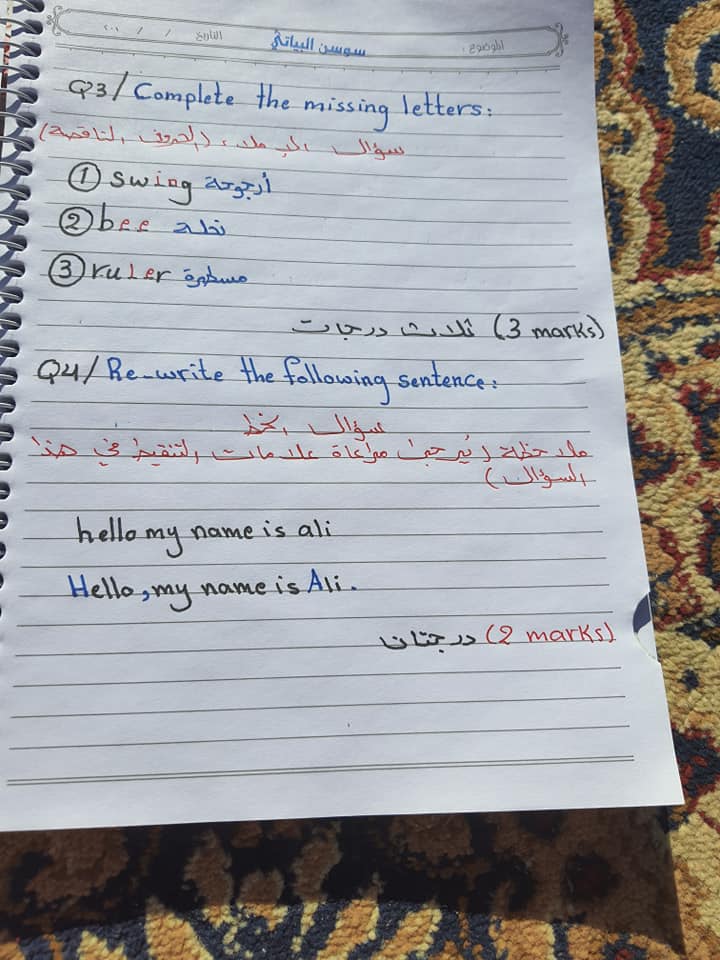 الموضوع : سوسن البياتي التاريخ / / ٢٠٠
Q3/ Complete the missing letters:
سؤال الإملاء (الحروف الناقصة)
① swing أرجوحة
② bee نحلة
③ ruler مسطرة
ثلاث درجات (3 marks)
Q4/ Re-write the following sentence:
سؤال الخط
ملاحظة (يُرجى مراعاة علامات التنقيط في هذا
السؤال)
hello my name is ali
Hello, my name is Ali.
درجتان (2 marks)